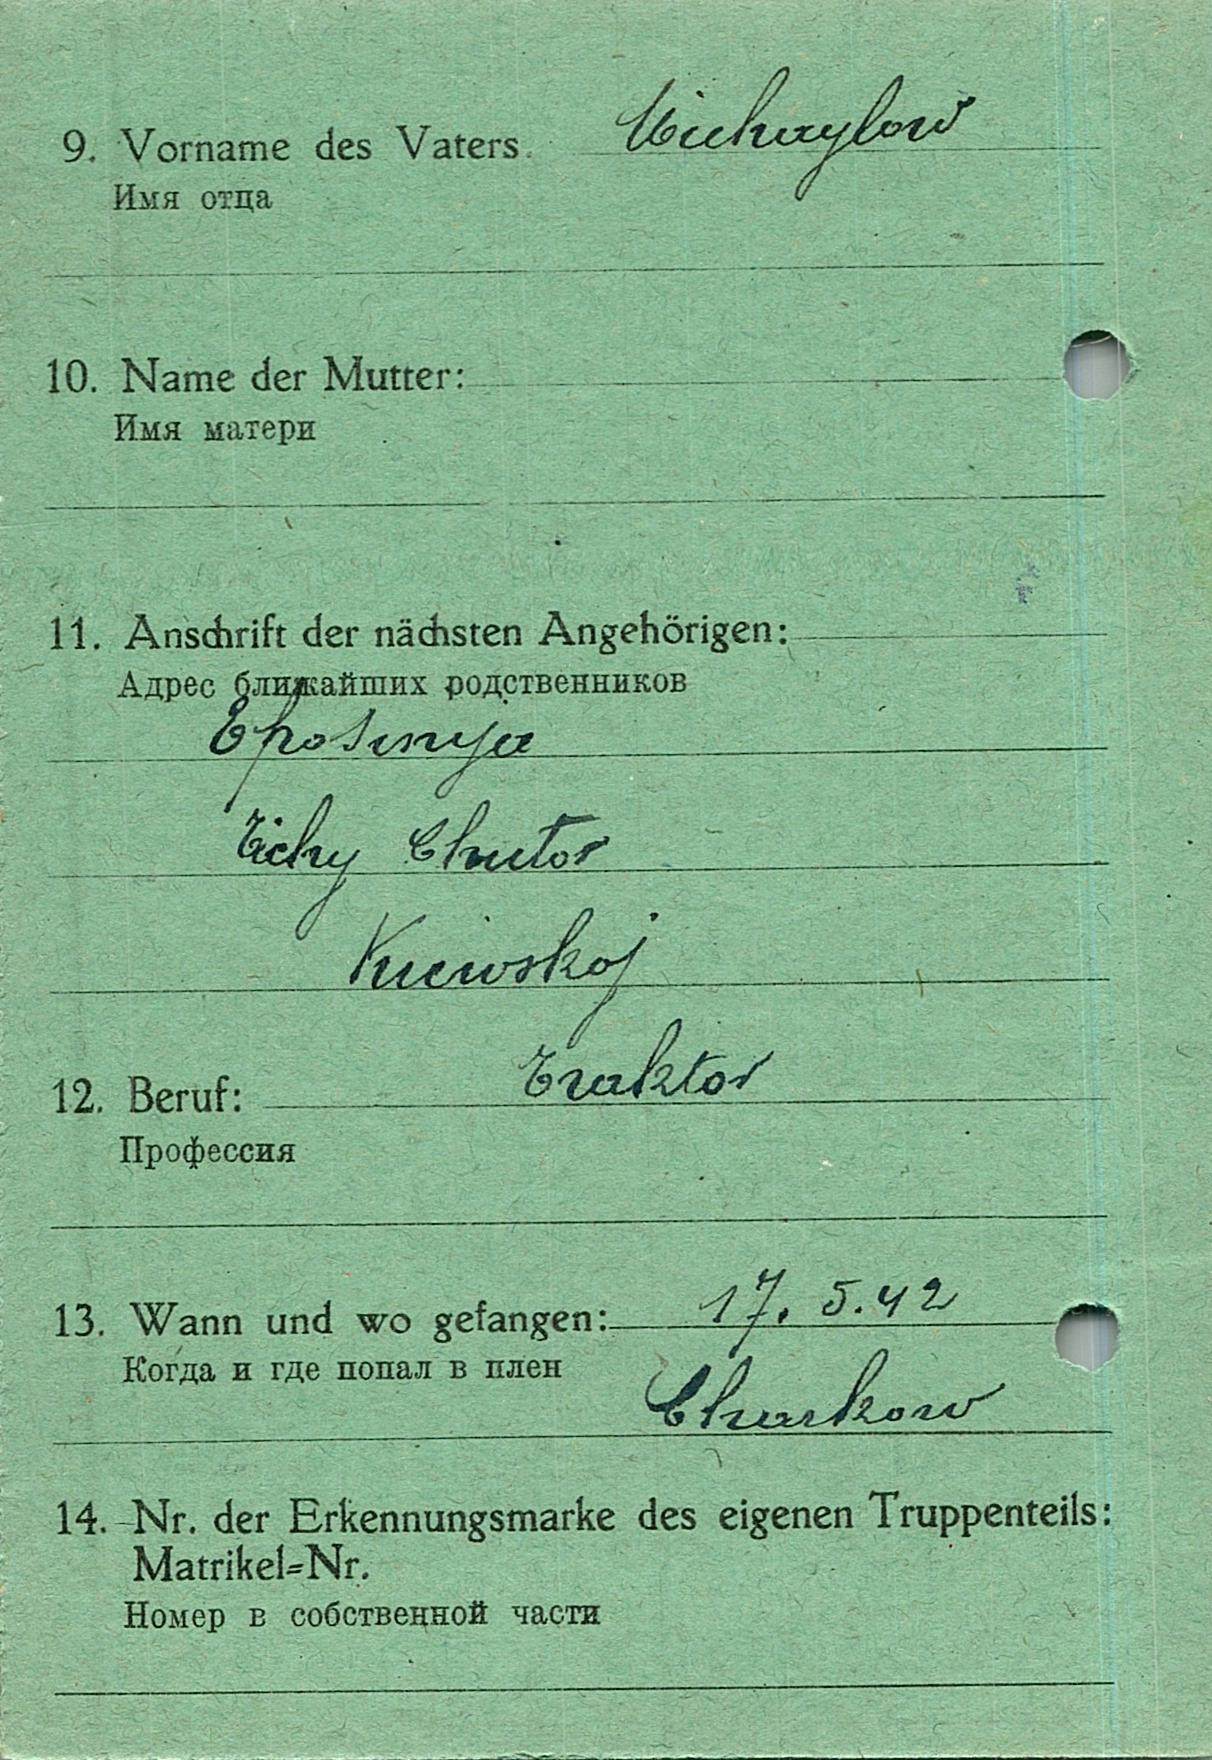 9. Vorname des Vaters. Michaylow
Имя отца
10. Name der Mutter:
Имя матери
11. Anschrift der nächsten Angehörigen:
Адрес ближайших родственников
Efrosinya
Tichy Chutor
Kiewskoj
12. Beruf: Traktor
Профессия
13. Wann und wo gefangen: 17. 5. 42
Когда и где попал в плен
Charkow
14. Nr. der Erkennungsmarke des eigenen Truppenteils:
Matrikel=Nr.
Номер в собственной части